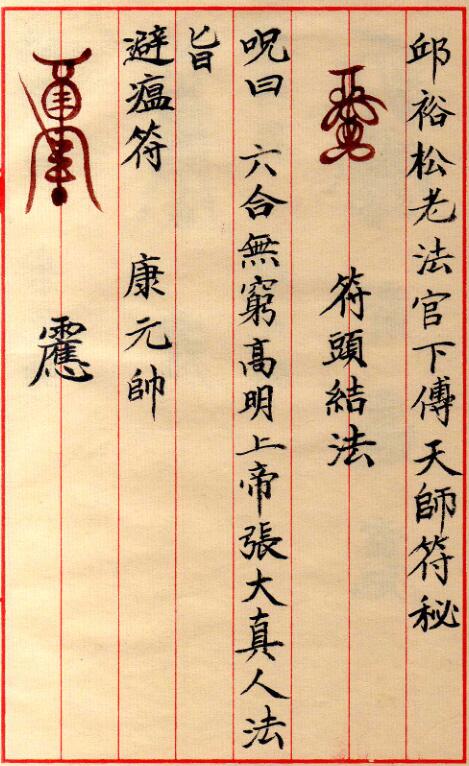 邱裕松老法官下傅天師符秘
符頭結法
呪曰 六合無窮高明上帝張大真人法
旨
避瘟符 康元帥